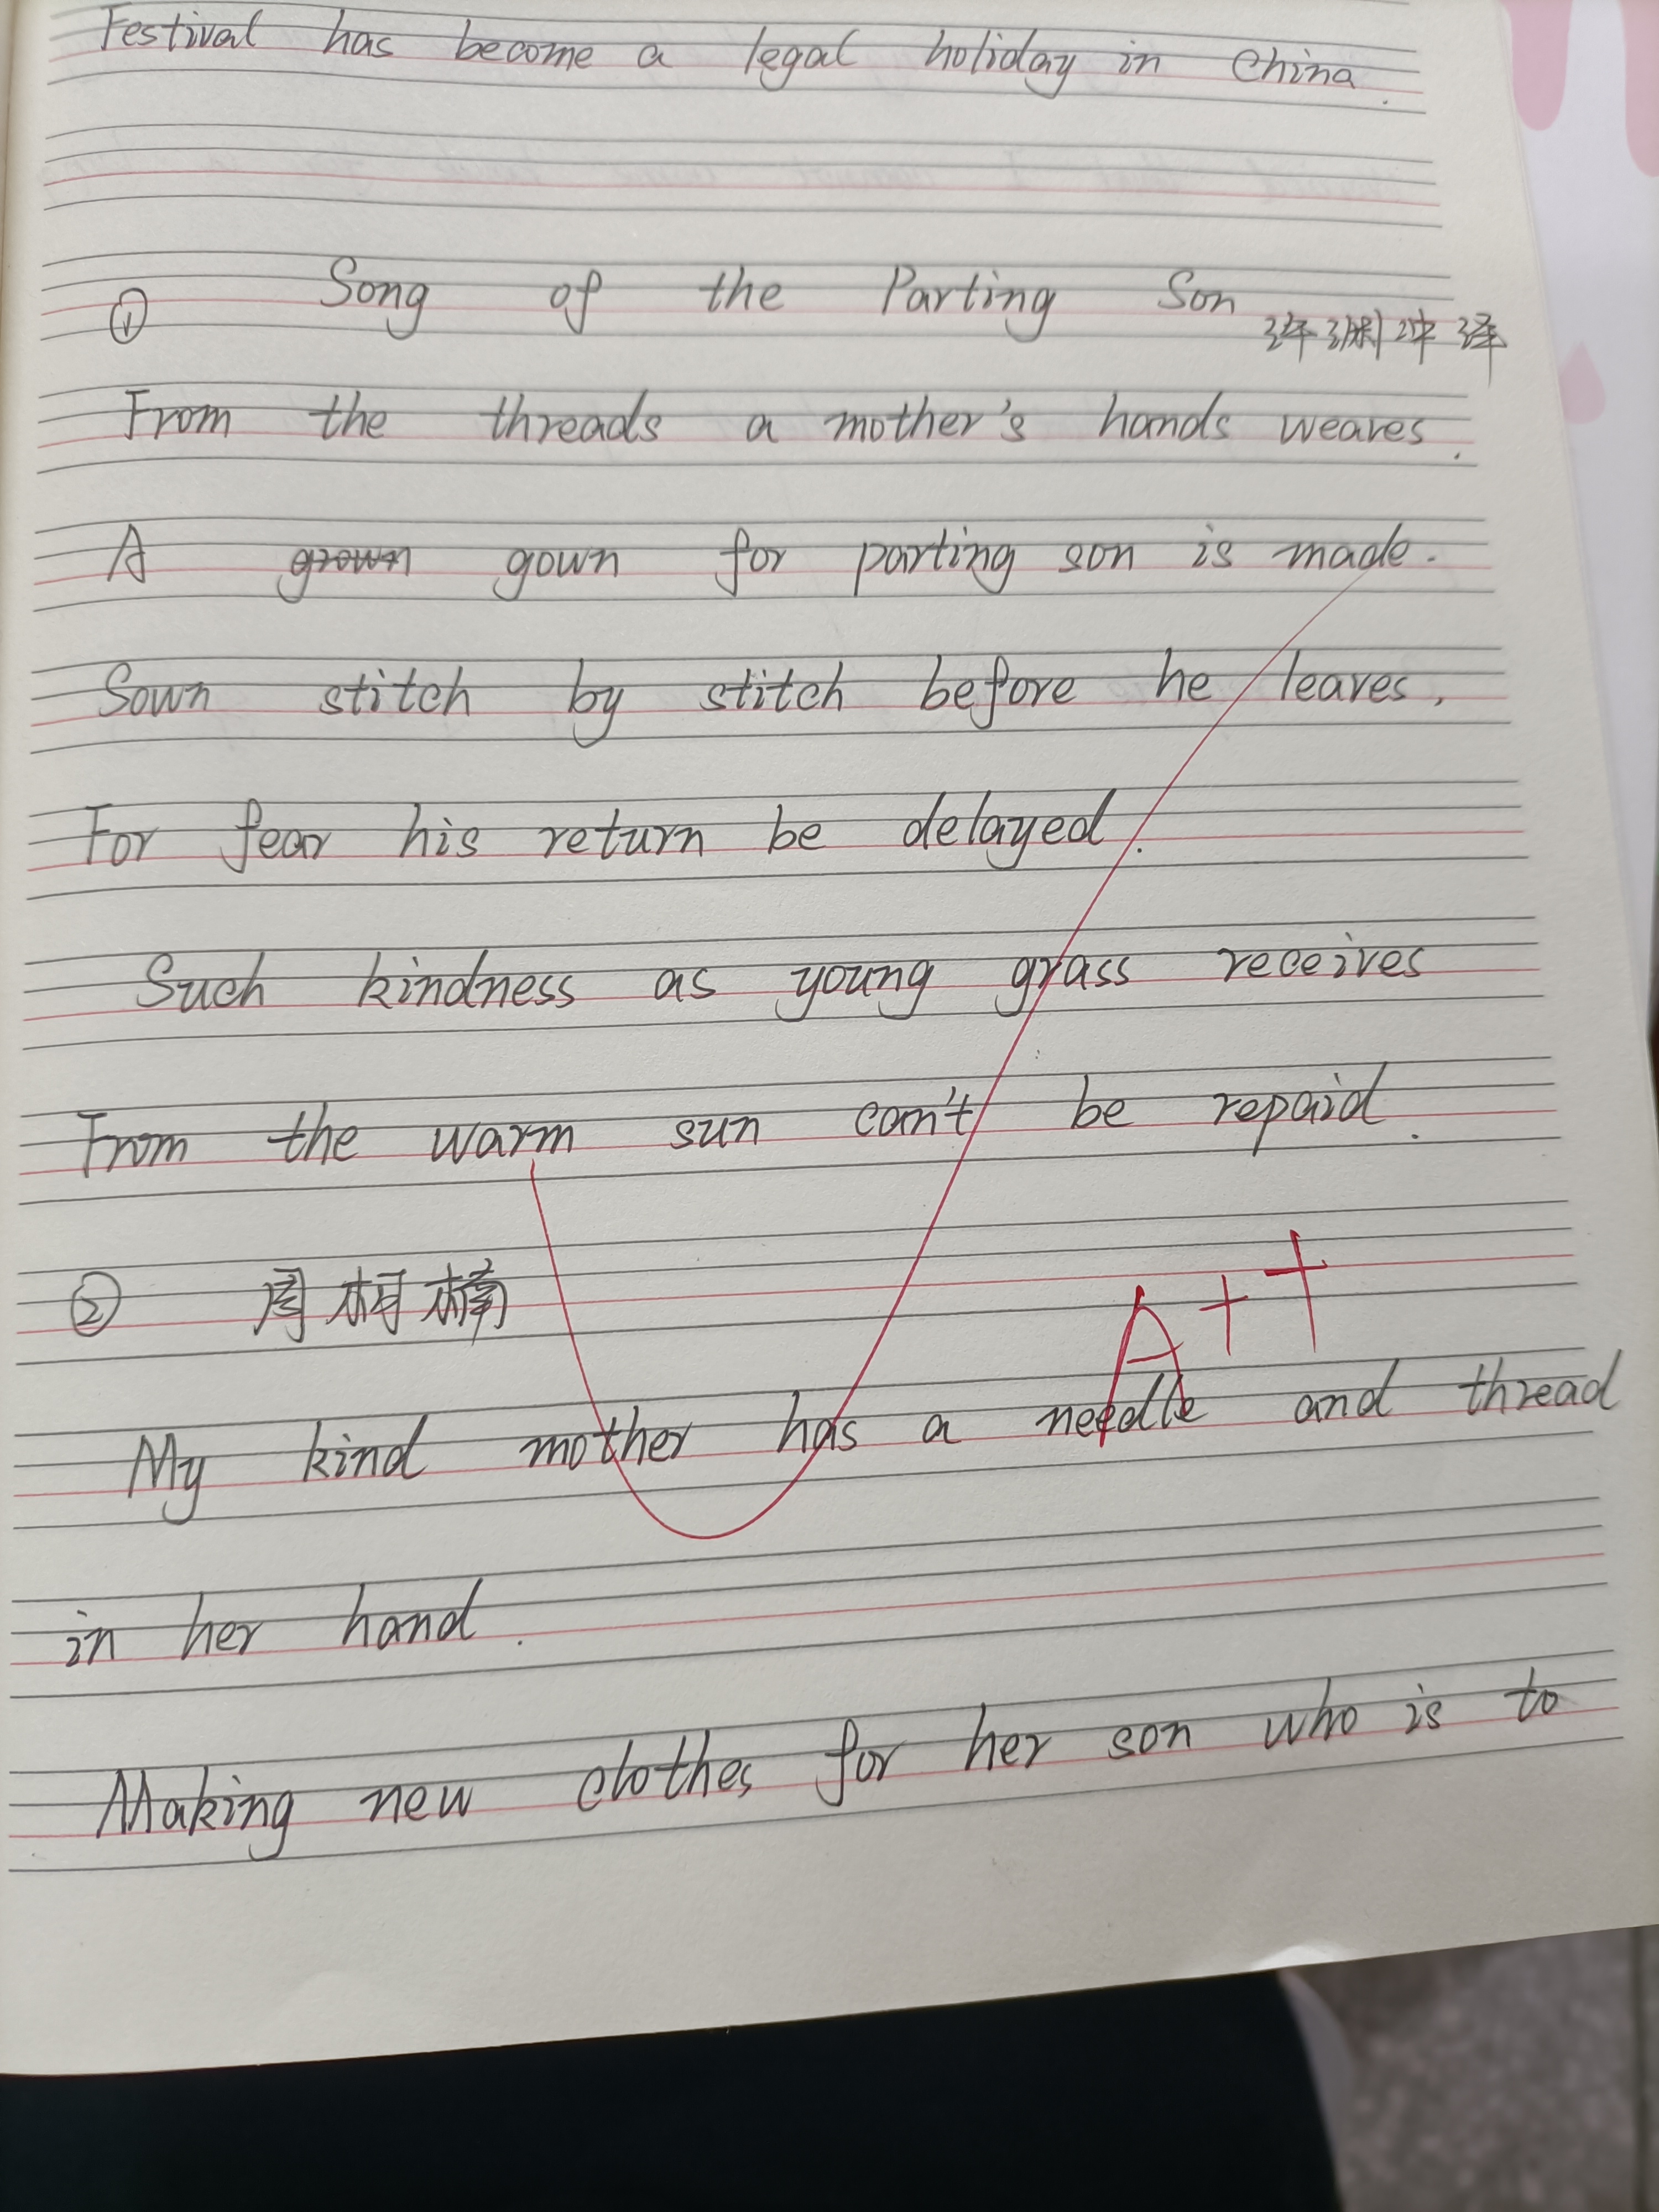 Festival has become a legal holiday in China.
① Song of the Parting Son 许渊冲 译
From the threads a mother's hands weaves.
A grown gown for parting son is made.
Sown stitch by stitch before he leaves,
For fear his return be delayed.
Such kindness as young grass receives
From the warm sun can't be repaid.
② 周柯楠
A++
My kind mother has a needle and thread
in her hand.
Making new clothes for her son who is to